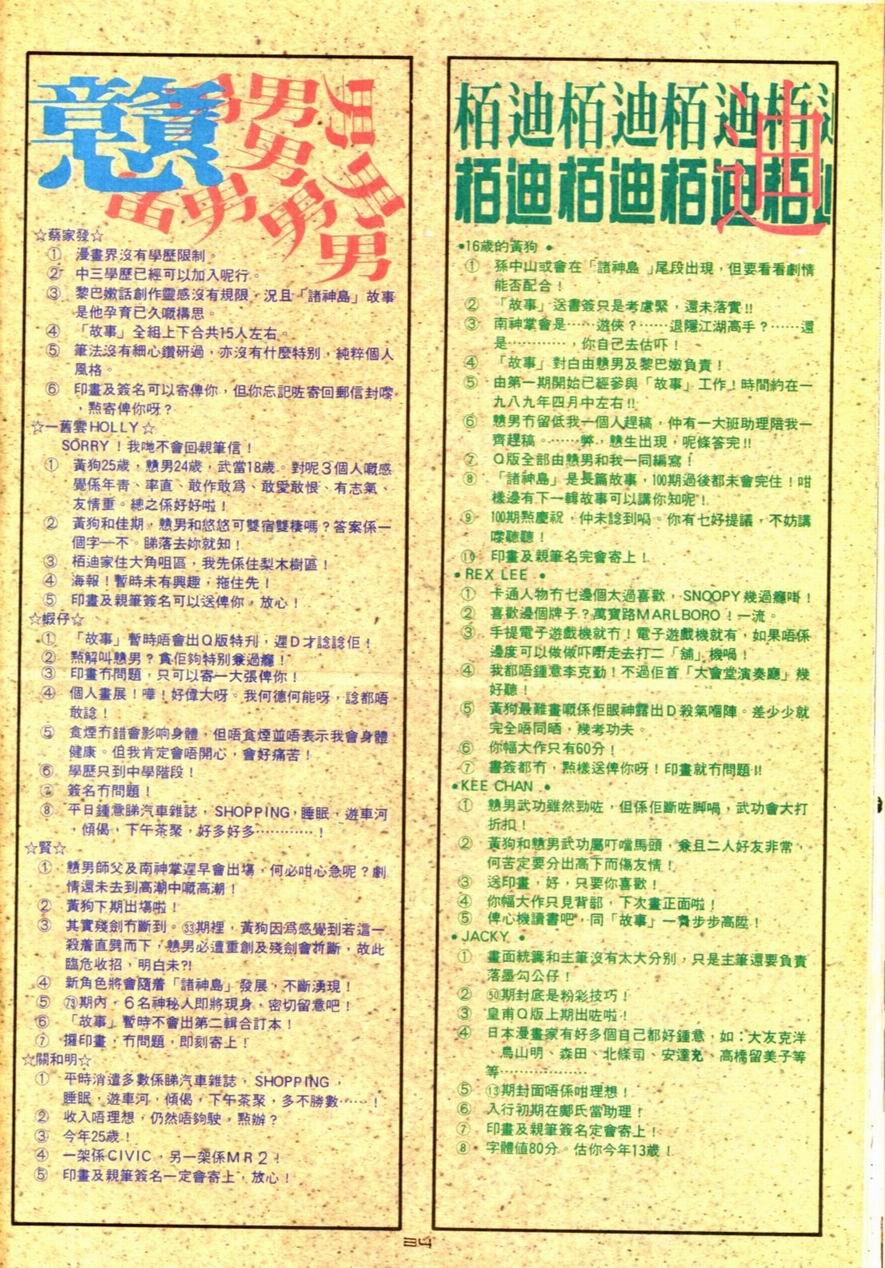 戇男男男男男男男男男
☆蔡家發☆
① 漫畫界沒有學歷限制。
② 中三學歷已經可以加入呢行。
③ 黎巴嫩話創作靈感沒有規限，況且「諸神島」故事
是他孕育已久嘅構思。
④ 「故事」全組上下合共15人左右。
⑤ 筆法沒有細心鑽硏過，亦沒有什麼特別，純粹個人
風格。
⑥ 印畫及簽名可以寄俾你，但你忘記咗寄回郵信封嚟
，點寄俾你呀？
☆一舊雲HOLLY☆
SORRY！我哋不會回親筆信！
① 黃狗25歲，戇男24歲，武當18歲。對呢3個人嘅感
覺係年靑、率直、敢作敢爲、敢愛敢恨、有志氣、
友情重。總之係好好啦！
② 黃狗和佳期，戇男和悠悠可雙宿雙棲嗎？答案係一
個字—不。睇落去妳就知！
③ 栢迪家住大角咀區，我先係住梨木樹區！
④ 海報！暫時未有興趣，拖住先！
⑤ 印畫及親筆簽名可以送俾你，放心！
☆蝦仔☆
① 「故事」暫時唔會出Q版特刋，遲D才諗諗佢！
② 點解叫戇男？貪佢夠特別兼過癮！
③ 印畫冇問題，只可以寄一大張俾你！
④ 個人畫展！嘩！好偉大呀。我何德何能呀，諗都唔
敢諗！
⑤ 食煙冇錯會影响身體，但唔食煙並唔表示我會身體
健康。但我肯定會唔開心，會好痛苦！
⑥ 學歷只到中學階段！
⑦ 簽名冇問題！
⑧ 平日鍾意睇汽車雜誌，SHOPPING，睡眠，遊車河
，傾偈，下午茶聚，好多好多…………！
☆賢☆
① 戇男師父及南神掌遲早會出塲，何必咁心急呢？劇
情還未去到高潮中嘅高潮！
② 黃狗下期出塲啦！
③ 其實殘劍冇斷到。㉝期裡，黃狗因爲感覺到若這一
殺着直劈而下，戇男必遭重創及殘劍會折斷，故此
臨危收招，明白未?!
④ 新角色將會隨着「諸神島」發展，不斷湧現！
⑤ 73期內，6名神秘人即將現身，密切留意吧！
⑥ 「故事」暫時不會出第二輯合訂本！
⑦ 攞印畫，冇問題，即刻寄上！
☆關和明☆
① 平時消遣多數係睇汽車雜誌，SHOPPING，
睡眠，遊車河，傾偈，下午茶聚，多不勝數……！
② 收入唔理想，仍然唔夠駛，點辦？
③ 今年25歲！
④ 一架係CIVIC，另一架係MR2！
⑤ 印畫及親筆簽名一定會寄上，放心！
栢迪栢迪栢迪栢迪
栢迪栢迪栢迪栢迪
•16歲的黃狗•
① 孫中山或會在「諸神島」尾段出現，但要看看劇情
能否配合！
② 「故事」送書簽只是考慮緊，還未落實!!
③ 南神掌會是……遊俠？……退隱江湖高手？……還
是…………，你自己去估吓！
④ 「故事」對白由戇男及黎巴嫩負責！
⑤ 由第一期開始已經參與「故事」工作！時間約在一
九八九年四月中左右!!
⑥ 戇男冇留低我一個人趕稿，仲有一大班助理陪我一
齊趕稿。……弊，戇生出現，呢條答完!!
⑦ Q版全部由戇男和我一同編寫！
⑧ 「諸神島」是長篇故事，100期過後都未會完住！咁
樣邊有下一輯故事可以講你知呢！
⑨ 100期點慶祝，仲未諗到喎。你有乜好提議，不妨講
嚟聽聽！
⑩ 印畫及親筆名完會寄上！
•REX LEE•
① 卡通人物冇乜邊個太過喜歡，SNOOPY幾過癮啩！
② 喜歡邊個牌子？萬寶路MARLBORO！一流。
③ 手提電子遊戲機就冇！電子遊戲機就有，如果唔係
邊度可以做做吓嘢走去打二「舖」機喎！
④ 我都唔鍾意李克勤！不過佢首「大會堂演奏廳」幾
好聽！
⑤ 黃狗最難畫嘅係佢眼神露出D殺氣嗰陣。差少少就
完全唔同晒，幾考功夫。
⑥ 你幅大作只有60分！
⑦ 書簽都冇，點樣送俾你呀！印畫就冇問題!!
•KEE CHAN•
① 戇男武功雖然勁咗，但係佢斷咗脚喎，武功會大打
折扣！
② 黃狗和戇男武功屬叮噹馬頭，兼且二人好友非常，
何苦定要分出高下而傷友情！
③ 送印畫，好，只要你喜歡！
④ 你幅大作只見背部，下次畫正面啦！
⑤ 俾心機讀書吧，同「故事」一齊步步高陞！
•JACKY•
① 畫面統籌和主筆沒有太大分別，只是主筆還要負責
落墨勾公仔！
② 50期封底是粉彩技巧！
③ 皇甫Q版上期出咗啦！
④ 日本漫畫家有好多個自己都好鍾意，如：大友克洋
、鳥山明、森田、北條司、安達充、高橋留美子等
等………………
⑤ ⑬期封面唔係咁理想！
⑥ 入行初期在鄺氏當助理！
⑦ 印畫及親筆簽名定會寄上！
⑧ 字體值80分。估你今年13歲！
34